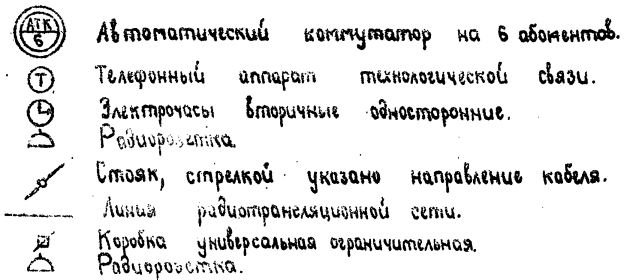 АТК
6
Автоматический коммутатор на 6 абонентов.
Т
Телефонный аппарат технологической связи.
Электрочасы вторичные односторонние.
Радиорозетка.
Стояк, стрелкой указано направление кабеля.
Линия радиотрансляционной сети.
Коробка универсальная ограничительная.
Радиорозетка.